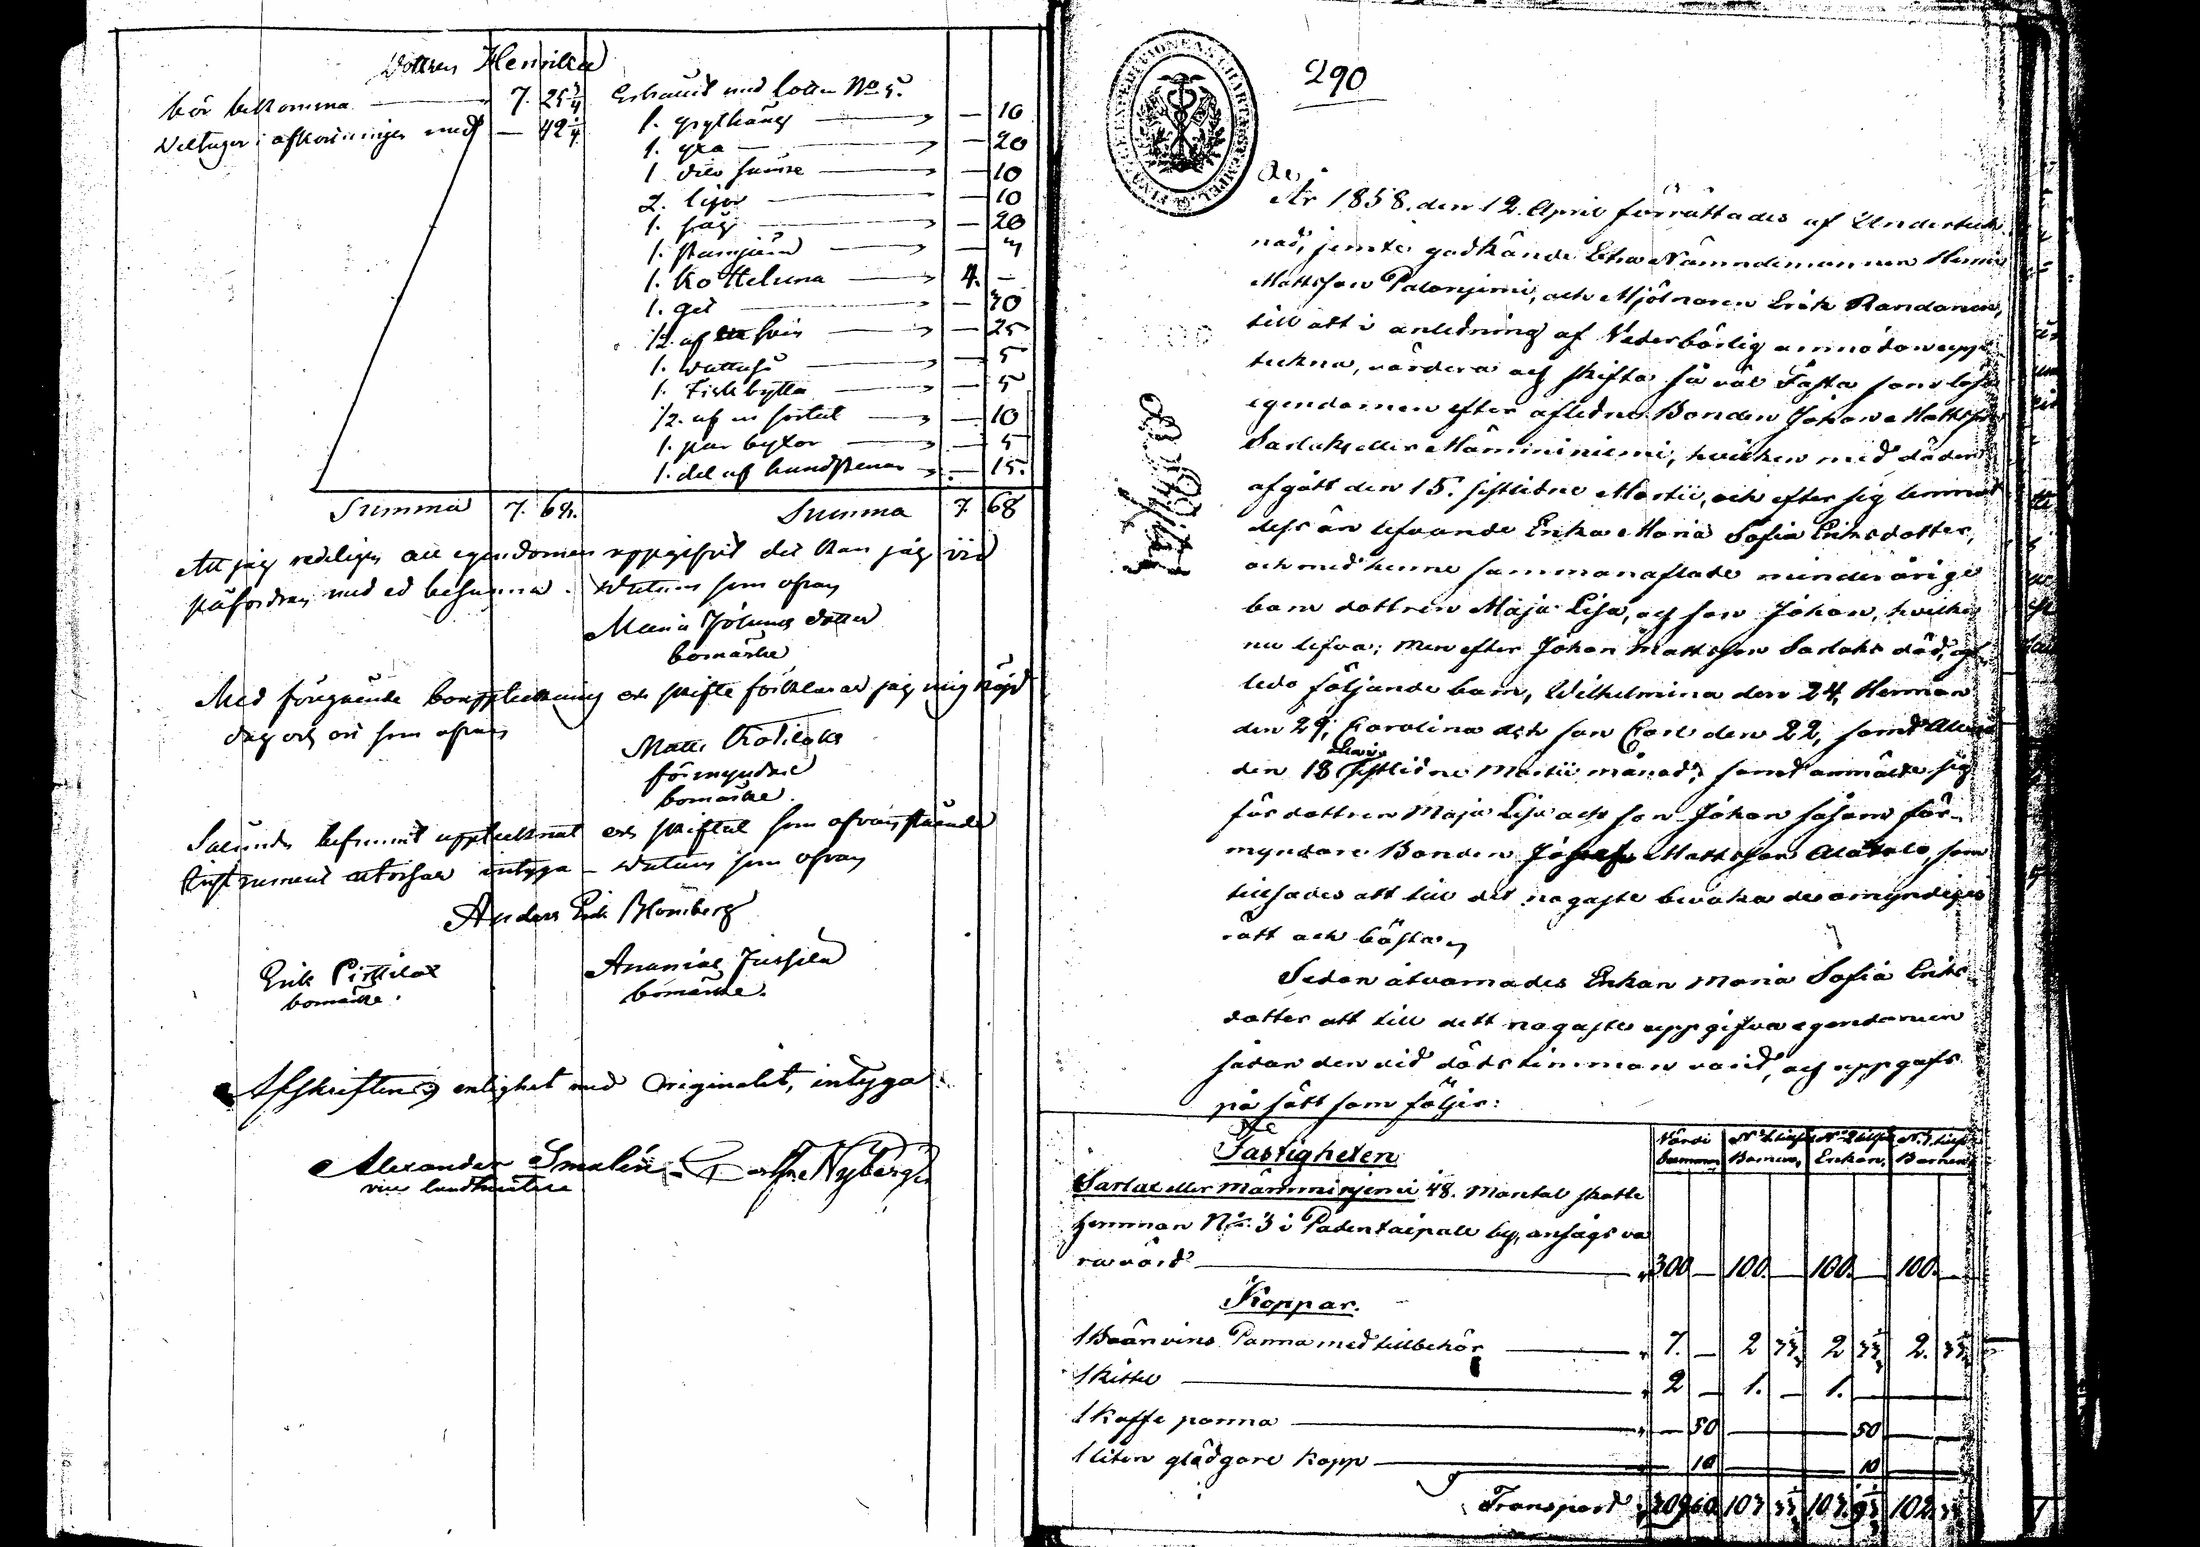 Dottren Henrika
bör bekomma 7. 25 3/4
Deltager i afkortningen med — 42 1/4
Erhållit med lotten No 5.
1. grythäng — 10
1. yxa — 20
1 — 10
2. lijor — 10
1. såg — 20
1. stamjern —
1. Ko Heluna 4. —
1. get — 30
1/2. af svin — 25
1. — 5
1. Fiskbytta — 5
1/2. af en — 10
1. par byxor — 5
1. del af handstenar — 15.
Summa 7. 68.
Summa 7. 68
Att jag redeligen all egendomen uppgifvit det kan jag vid
påfordran med ed besanna. Datum som ofvan
Maria Johans dotter
bomärke
Med föregående bouppteckning och skifte förklarar jag mig nöjd
dag och ort som ofvan
Matts
förmyndare
bomärke.
Sålunda befunnit upptecknat och skiftat som ofvanstående
Instrument utvisar intyga — Datum som ofvan
Anders Erik Blomberg
Erik
bomärke.
Ananias Jussila
bomärke.
Afskriftens enlighet med Originalet, intyga
Alexander Smalén
vice landtmätare
Nyberg
290
FINSKA EXPEDITIONENS CHARTÆ STEMPEL
År 1858. den 12. April förrättades af Underteck-
nad, jemte godkände Letson Nämndemannen
Mattsson Palonjemi, och Mjölnaren Erik Randanen,
till att i anledning af Vederbörlig anmodan upp-
tekna, värdera och skifta så väl Fasta som lösa
egendomen efter aflidne Bonden Johan Mattsson
Sarlaks eller Mämminiemi, hvilken med döden
afgått den 15. sistlidne Martii, och efter sig lemnat
dess än lefvande Enka Maria Sofia Eriksdotter,
och med henne sammanaflade minderårige
barn dottren Maja Lisa, och son Johan, hvilka
nu lefva; men efter Johan Mattsson Sarlaks död, af-
ledo följande barn, Wilhelmina den 24, Herman
den 29, Carolina och son Carl den 22, samt
den 18 sistlidne Martii månad; samt anmälte sig
för dottren Maja Lisa och son Johan såsom för-
myndare Bonden Mattsson Alatalo, som
tillsades att till det nogaste bevaka de omyndiges
rätt och bästa.
Sedan åtvarnades Enkan Maria Sofia Eriks-
dotter att till dett nogaste uppgifva egendomen
sådan den vid dödstimman varit, och uppgafs
på sätt som följer:
Värdi
No 2 tillf. Barnen,
No 2 tillf. Enkan,
No 1 tillf. Barnen
Fastigheten
Sarlax eller Mämminjemi 48. Mantal skatte
hemman No 3 i Padentaipale by, ansågs va
ra värd 300 — 100. — 100. — 100. —
Koppar.
1 Bränvins Panna med tillbehör 7. — 2 33 1/3 2 33 1/3 2. 33 1/3
1 Kittel 2 — 1. — 1. —
1 Kaffe panna — 50 — 50
1 liten glödgare Kopp — 10 — 10
Transport 309 60 103 33 1/3 103. 93 1/3 102. 33 1/3